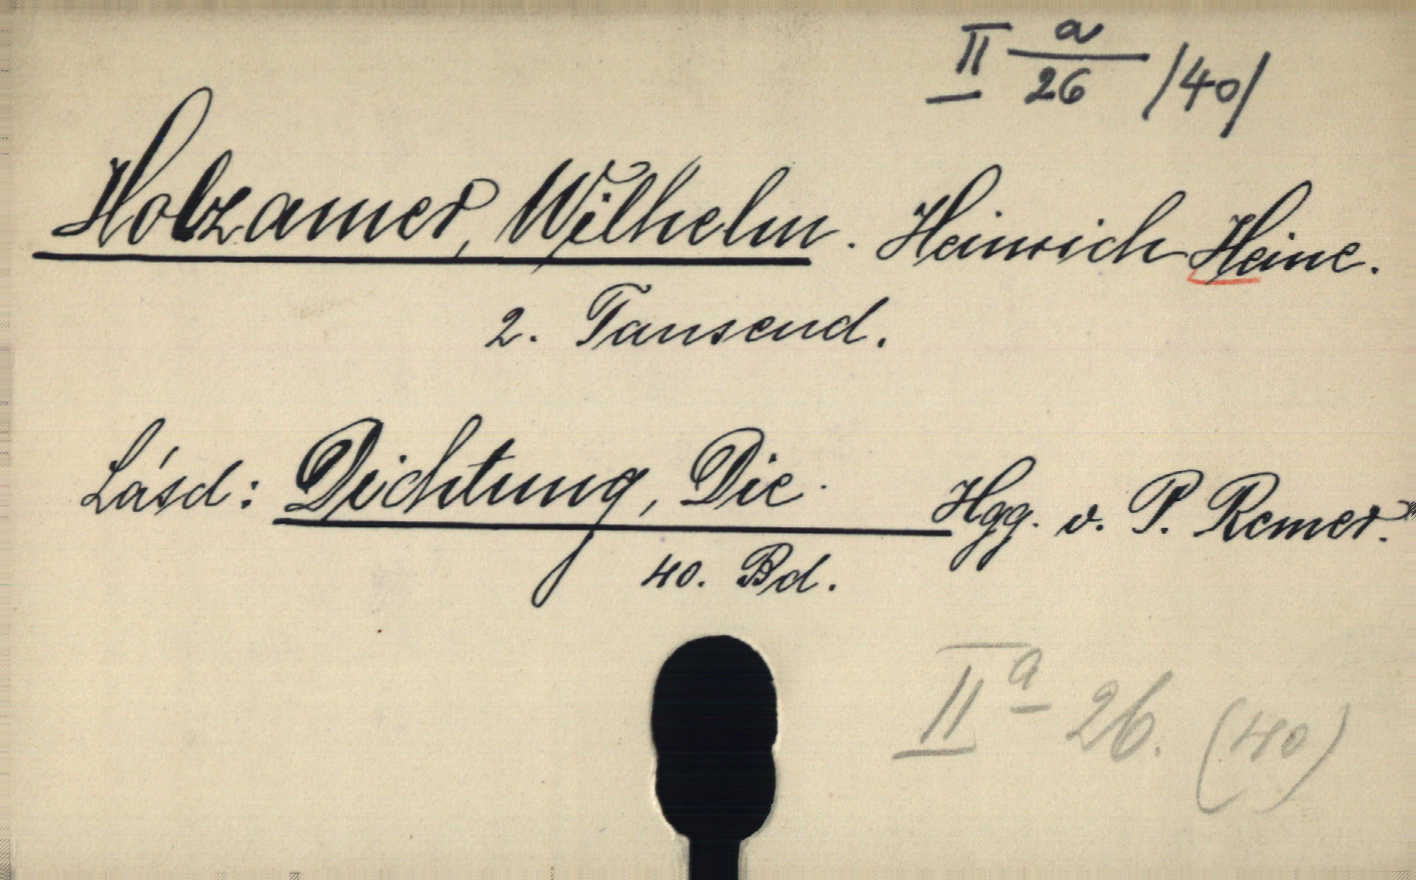 II a/26 /40/
Holzamer, Wilhelm. Heinrich Heine.
2. Tausend.
Lásd: Dichtung, Die. Hgg. v. P. Remer.
40. Bd.
II a 26. (40)